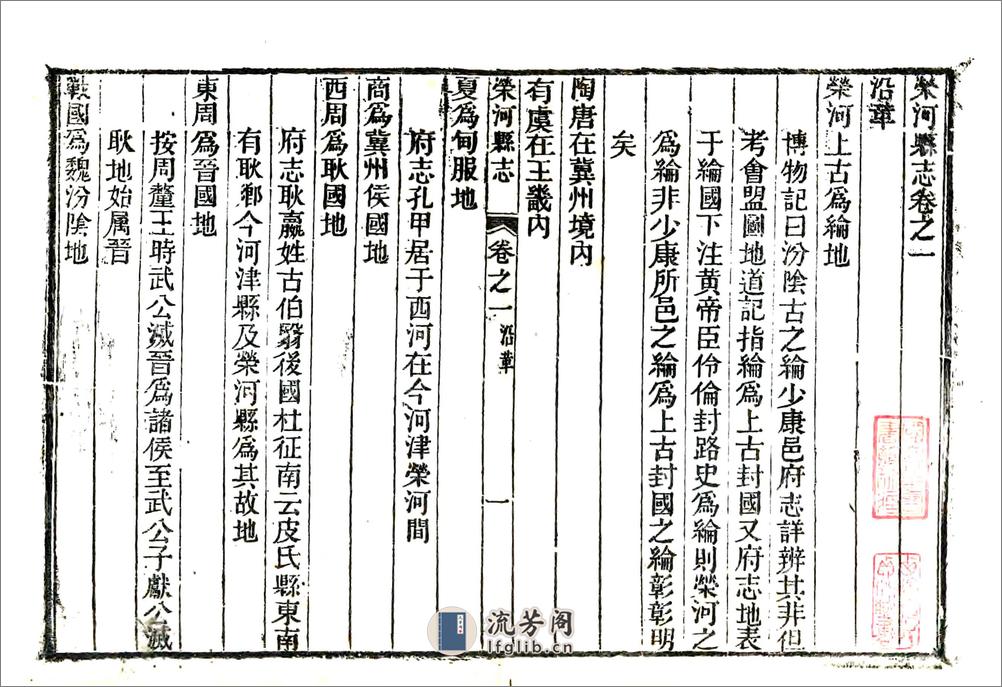 榮河縣志卷之一
沿革
榮河上古爲綸地
博物記曰汾陰古之綸少康邑府志詳辨其非但
考會盟圖地道記指綸爲上古封國又府志地表
于綸國下注黃帝臣伶倫封路史爲綸則榮河之
爲綸非少康所邑之綸爲上古封國之綸彰彰明
矣
陶唐在冀州境內
有虞在王畿內
榮河縣志 卷之一 沿革 一
夏爲甸服地
府志孔甲居于西河在今河津榮河間
商爲冀州侯國地
西周爲耿國地
府志耿嬴姓古伯翳後國杜征南云皮氏縣東南
有耿鄕今河津縣及榮河縣爲其故地
東周爲晉國地
按周釐王時武公滅晉爲諸侯至武公子獻公滅
耿地始屬晉
戰國爲魏汾陰地
流芳阁
lfglib.cn